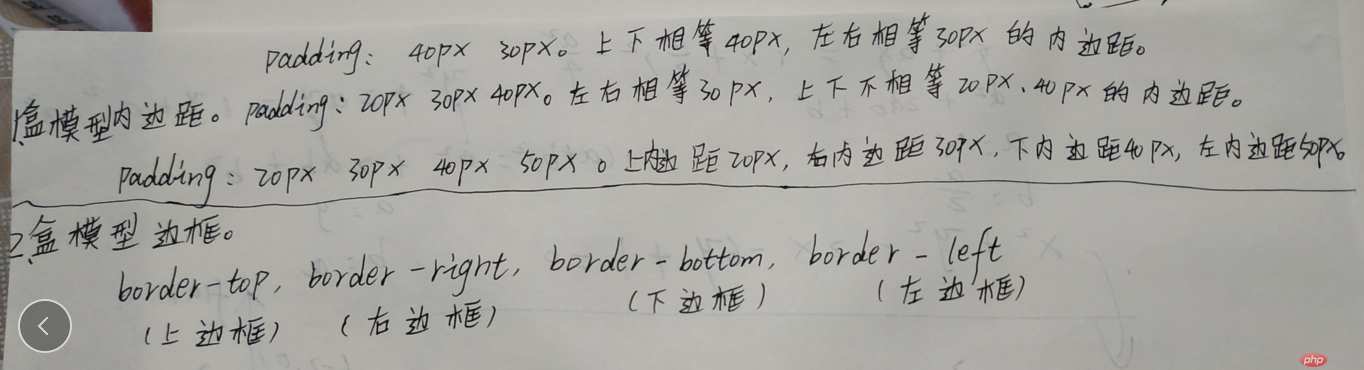 padding: 40px 30px。上下相等40px, 左右相等30px 的内边距。
1.盒模型内边距。padding: 20px 30px 40px。左右相等30px, 上下不相等20px、40px的内边距。
padding: 20px 30px 40px 50px。上内边距20px, 右内边距30px, 下内边距40px, 左内边距50px。
2.盒模型边框。
border-top, border-right, border-bottom, border-left
(上边框) (右边框) (下边框) (左边框)
php